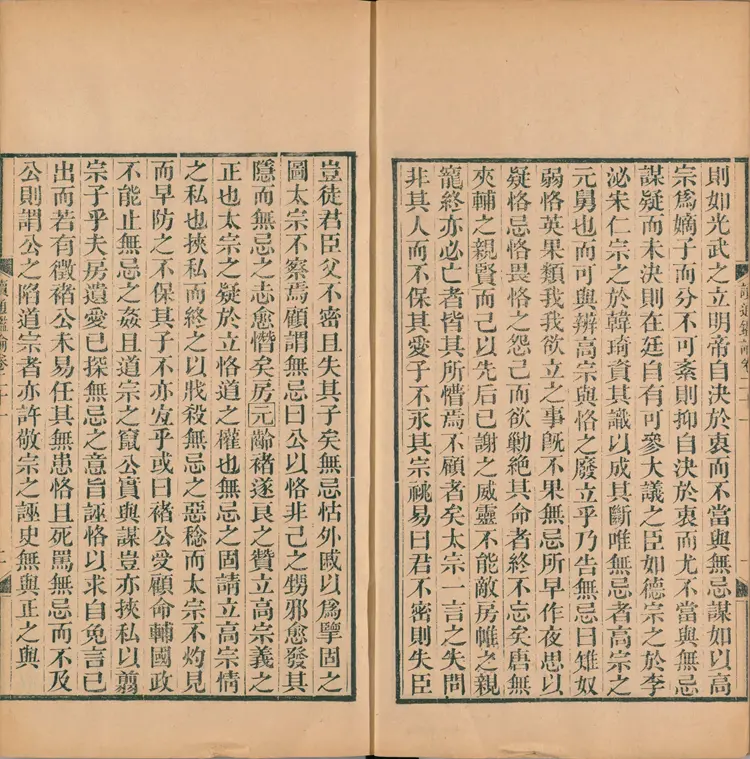 則如光武之立明帝自決於衷而不當與無忌謀如以高
宗爲嫡子而分不可紊則抑自決於衷而尤不當與無忌
謀疑而未決則在廷自有可參大議之臣如德宗之於李
泌宋仁宗之於韓琦資其識以成其斷唯無忌者高宗之
元舅也而可與辨高宗與恪之廢立乎乃告無忌曰雉奴
弱恪英果類我我欲立之事旣不果無忌所早作夜思以
疑恪忌恪畏恪之怨己而欲勦絕其命者終不忘矣唐無
夾輔之親賢而己以先后已謝之威靈不能敵房帷之親
寵終亦必亡者皆其所憯焉不顧者矣太宗一言之失問
非其人而不保其愛子不永其宗祧易曰君不密則失臣
讀通鑑論卷二十一
豈徒君臣父不密且失其子矣無忌怙外戚以爲擥固之
圖太宗不察焉顧謂無忌曰公以恪非己之甥邪愈發其
隱而無忌之志愈憯矣房元齡褚遂良之贊立高宗義之
正也太宗之疑於立恪道之權也無忌之固請立高宗情
之私也挾私而終之以戕殺無忌之惡稔而太宗不灼見
而早防之不保其子不亦宜乎或曰褚公受顧命輔國政
不能止無忌之姦且道宗之竄公實與謀豈亦挾私以翦
宗子乎夫房遺愛已探無忌之意旨誣恪以求自免言已
出而若有徵褚公未易任其無患恪且死罵無忌而不及
公則謂公之陷道宗者亦許敬宗之誣史無與正之與
讀通鑑論卷二十一
二